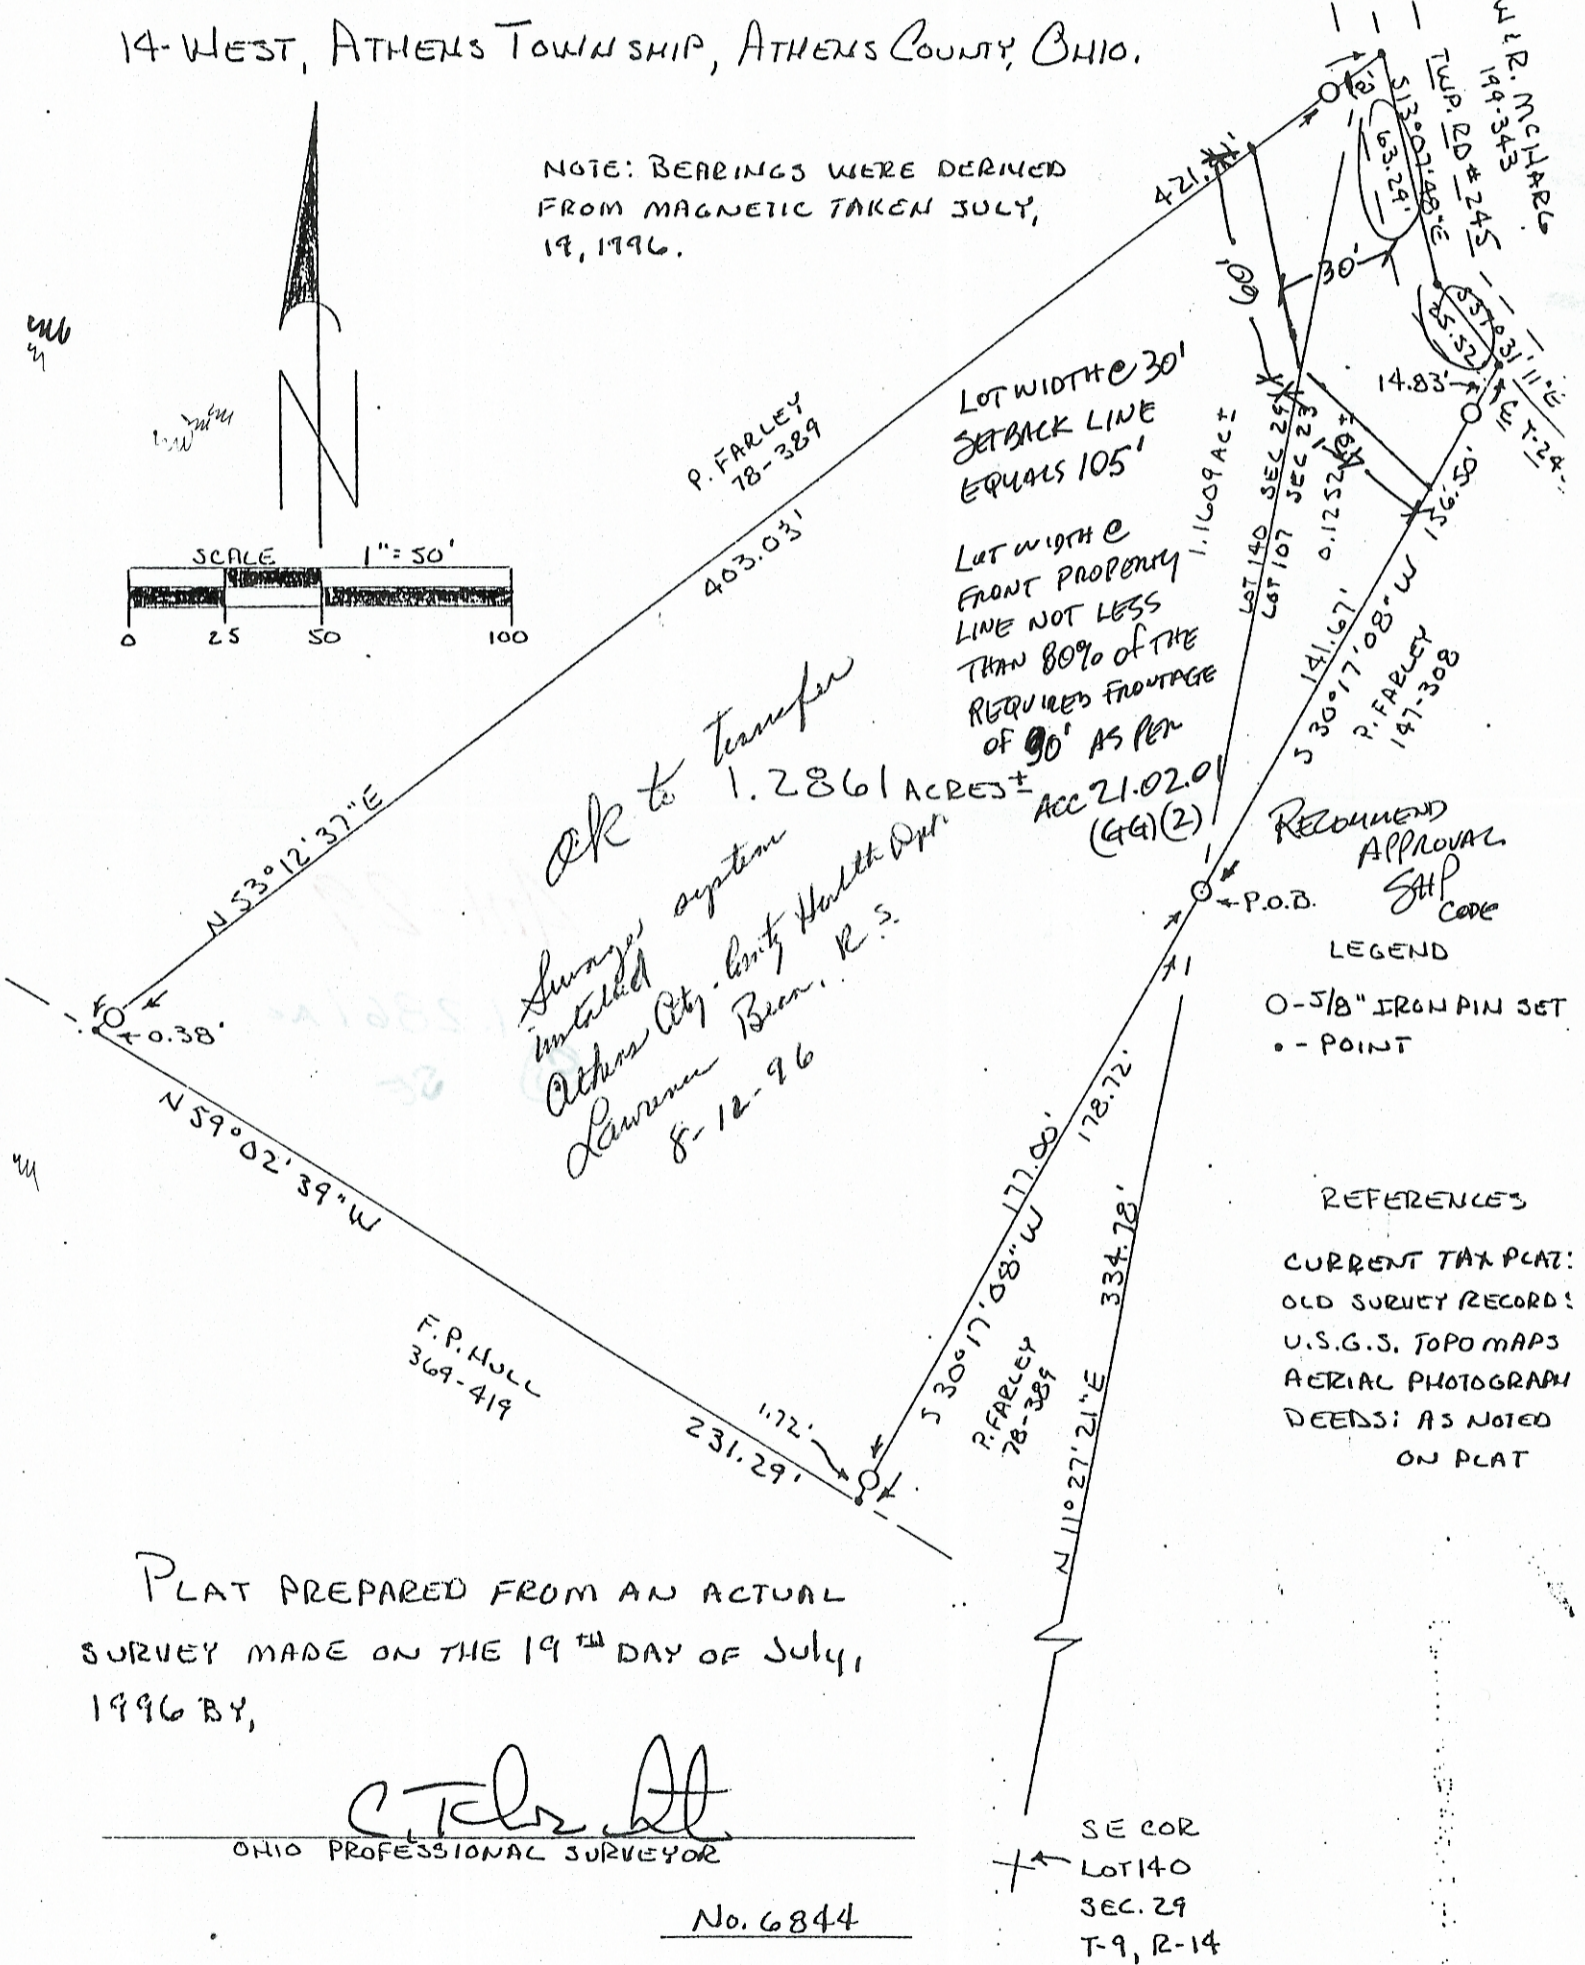 14-WEST, ATHENS TOWNSHIP, ATHENS COUNTY, OHIO.
NOTE: BEARINGS WERE DERIVED
FROM MAGNETIC TAKEN JULY,
19, 1996.
N
SCALE 1"=50'
0 25 50 100
P. FARLEY
78-389
403.03'
N 53°12'37"E
0.38'
N 59°02'39"W
F.P. HULL
369-419
231.29'
1.72'
R. MCHARG
199-343
TWP. RD # 245
S13°07'48"E
63.29'
S37°31'11"E
25.52'
14.83'
30'
60'
LOT WIDTH @ 30'
SETBACK LINE
EQUALS 105'
LOT WIDTH @
FRONT PROPERTY
LINE NOT LESS
THAN 80% of THE
REQUIRED FRONTAGE
OF 90' AS PER
ACC 21.02.01
(GG)(2)
1.1609 AC±
LOT 140 SEC 29
LOT 107 SEC 23
0.1252
156.50'
141.67'
S 30°17'08"W
P. FARLEY
147-308
ok to transfer
1.2861 ACRES±
Sewage system
installed
Athens City-County Health Dept.
Lawrence Bean, R.S.
8-12-96
RECOMMEND
APPROVAL
CODE
P.O.B.
LEGEND
O-5/8" IRON PIN SET
• - POINT
177.00'
178.72'
S 30°17'08"W
P. FARLEY
78-389
334.78'
N 11°27'21"E
REFERENCES
CURRENT TAX PLAT:
OLD SURVEY RECORD:
U.S.G.S. TOPO MAPS
AERIAL PHOTOGRAPH
DEEDS: AS NOTED
ON PLAT
PLAT PREPARED FROM AN ACTUAL
SURVEY MADE ON THE 19TH DAY OF July,
1996 BY,
OHIO PROFESSIONAL SURVEYOR
No. 6844
SE COR
LOT 140
SEC. 29
T-9, R-14